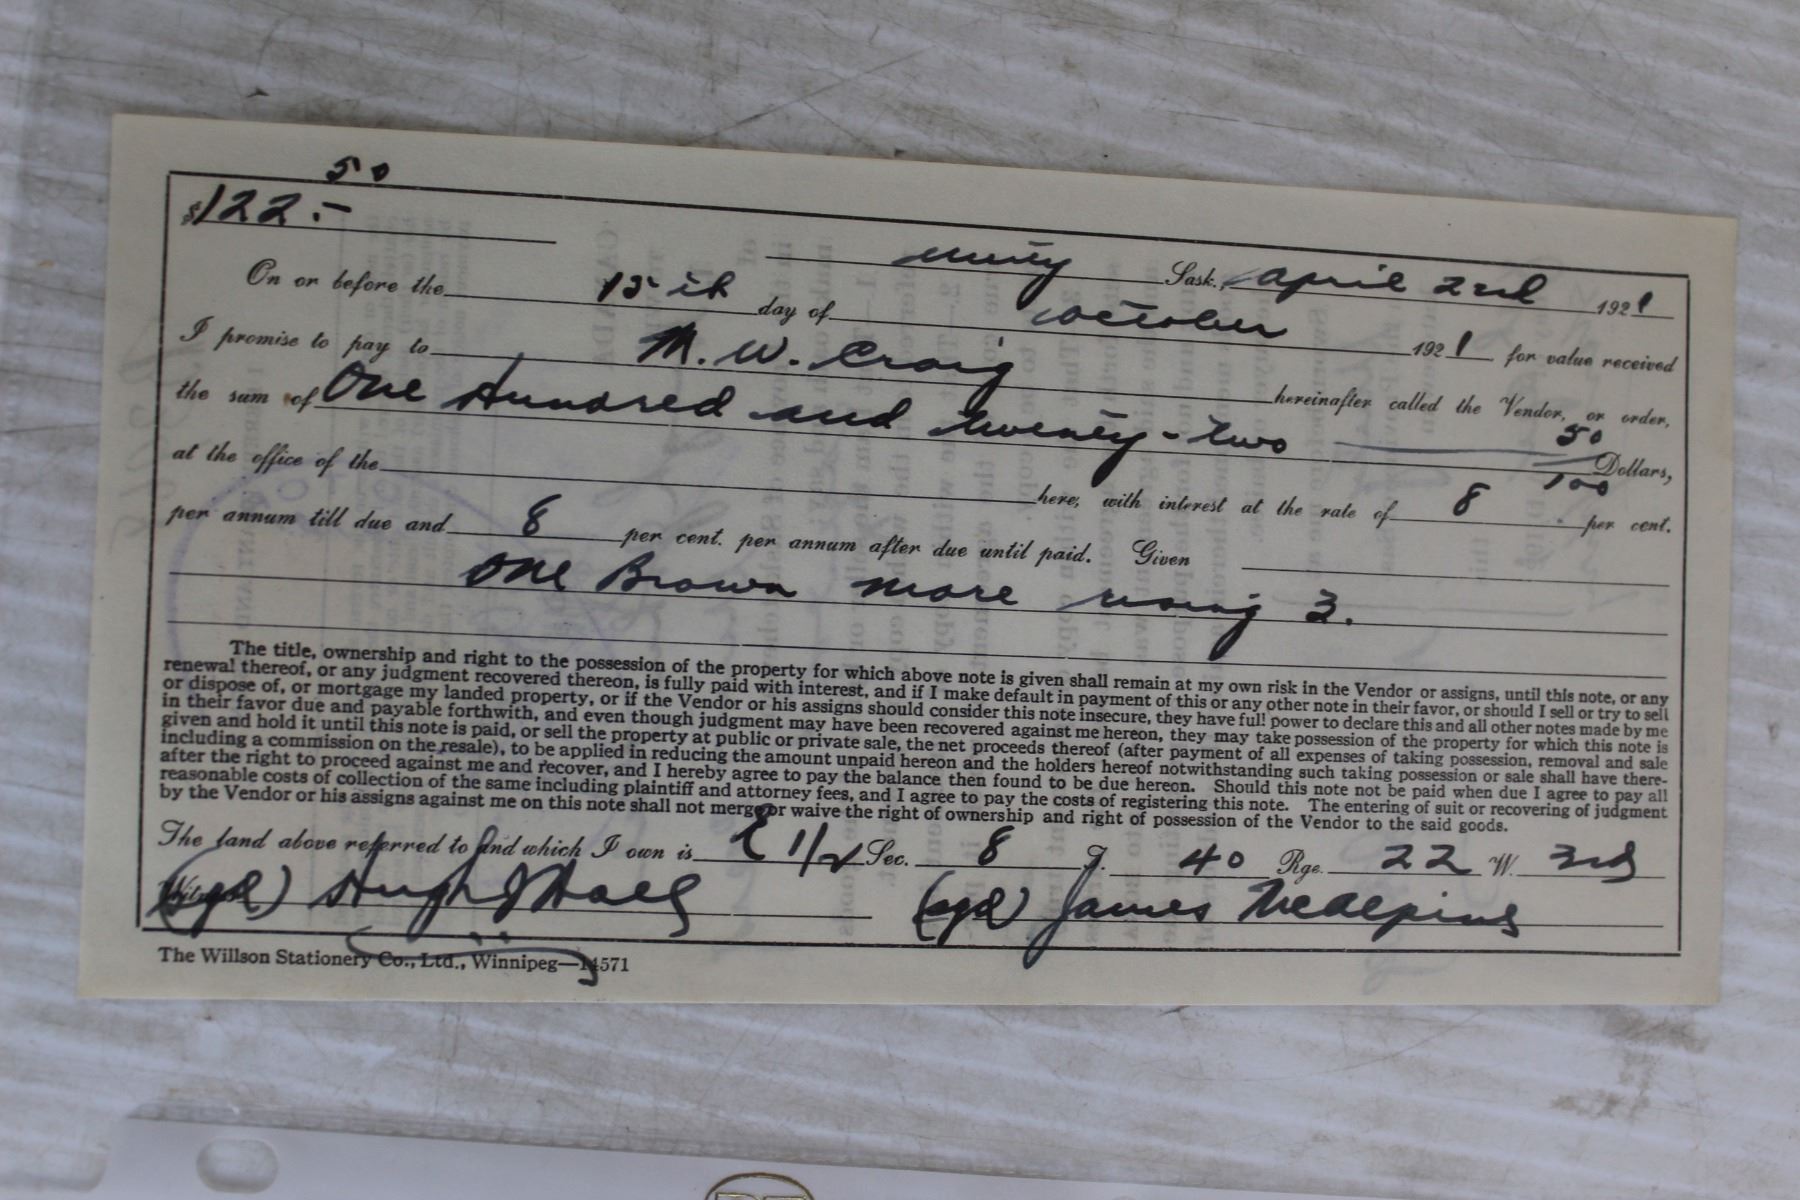 $122.50
Unity Sask., April 2nd 1921
On or before the 15th day of October 1921 for value received
I promise to pay to M. W. Craig hereinafter called the Vendor, or order,
the sum of One Hundred and twenty-two 50/100 Dollars,
at the office of the here, with interest at the rate of 8 per cent.
per annum till due and 8 per cent. per annum after due until paid. Given
One Brown mare rising 3.
The title, ownership and right to the possession of the property for which above note is given shall remain at my own risk in the Vendor or assigns, until this note, or any
renewal thereof, or any judgment recovered thereon, is fully paid with interest, and if I make default in payment of this or any other note in their favor, or should I sell or try to sell
or dispose of, or mortgage my landed property, or if the Vendor or his assigns should consider this note insecure, they have full power to declare this and all other notes made by me
in their favor due and payable forthwith, and even though judgment may have been recovered against me hereon, they may take possession of the property for which this note is
given and hold it until this note is paid, or sell the property at public or private sale, the net proceeds thereof (after payment of all expenses of taking possession, removal and sale
including a commission on the resale), to be applied in reducing the amount unpaid hereon and the holders hereof notwithstanding such taking possession or sale shall have there-
after the right to proceed against me and recover, and I hereby agree to pay the balance then found to be due hereon. Should this note not be paid when due I agree to pay all
reasonable costs of collection of the same including plaintiff and attorney fees, and I agree to pay the costs of registering this note. The entering of suit or recovering of judgment
by the Vendor or his assigns against me on this note shall not merge or waive the right of ownership and right of possession of the Vendor to the said goods.
The land above referred to and which I own is E 1/2 Sec. 8 T. 40 Rge. 22 W. 3rd
Witness (sgd) Hugh (sgd) James McAlpine
The Willson Stationery Co., Ltd., Winnipeg—14571